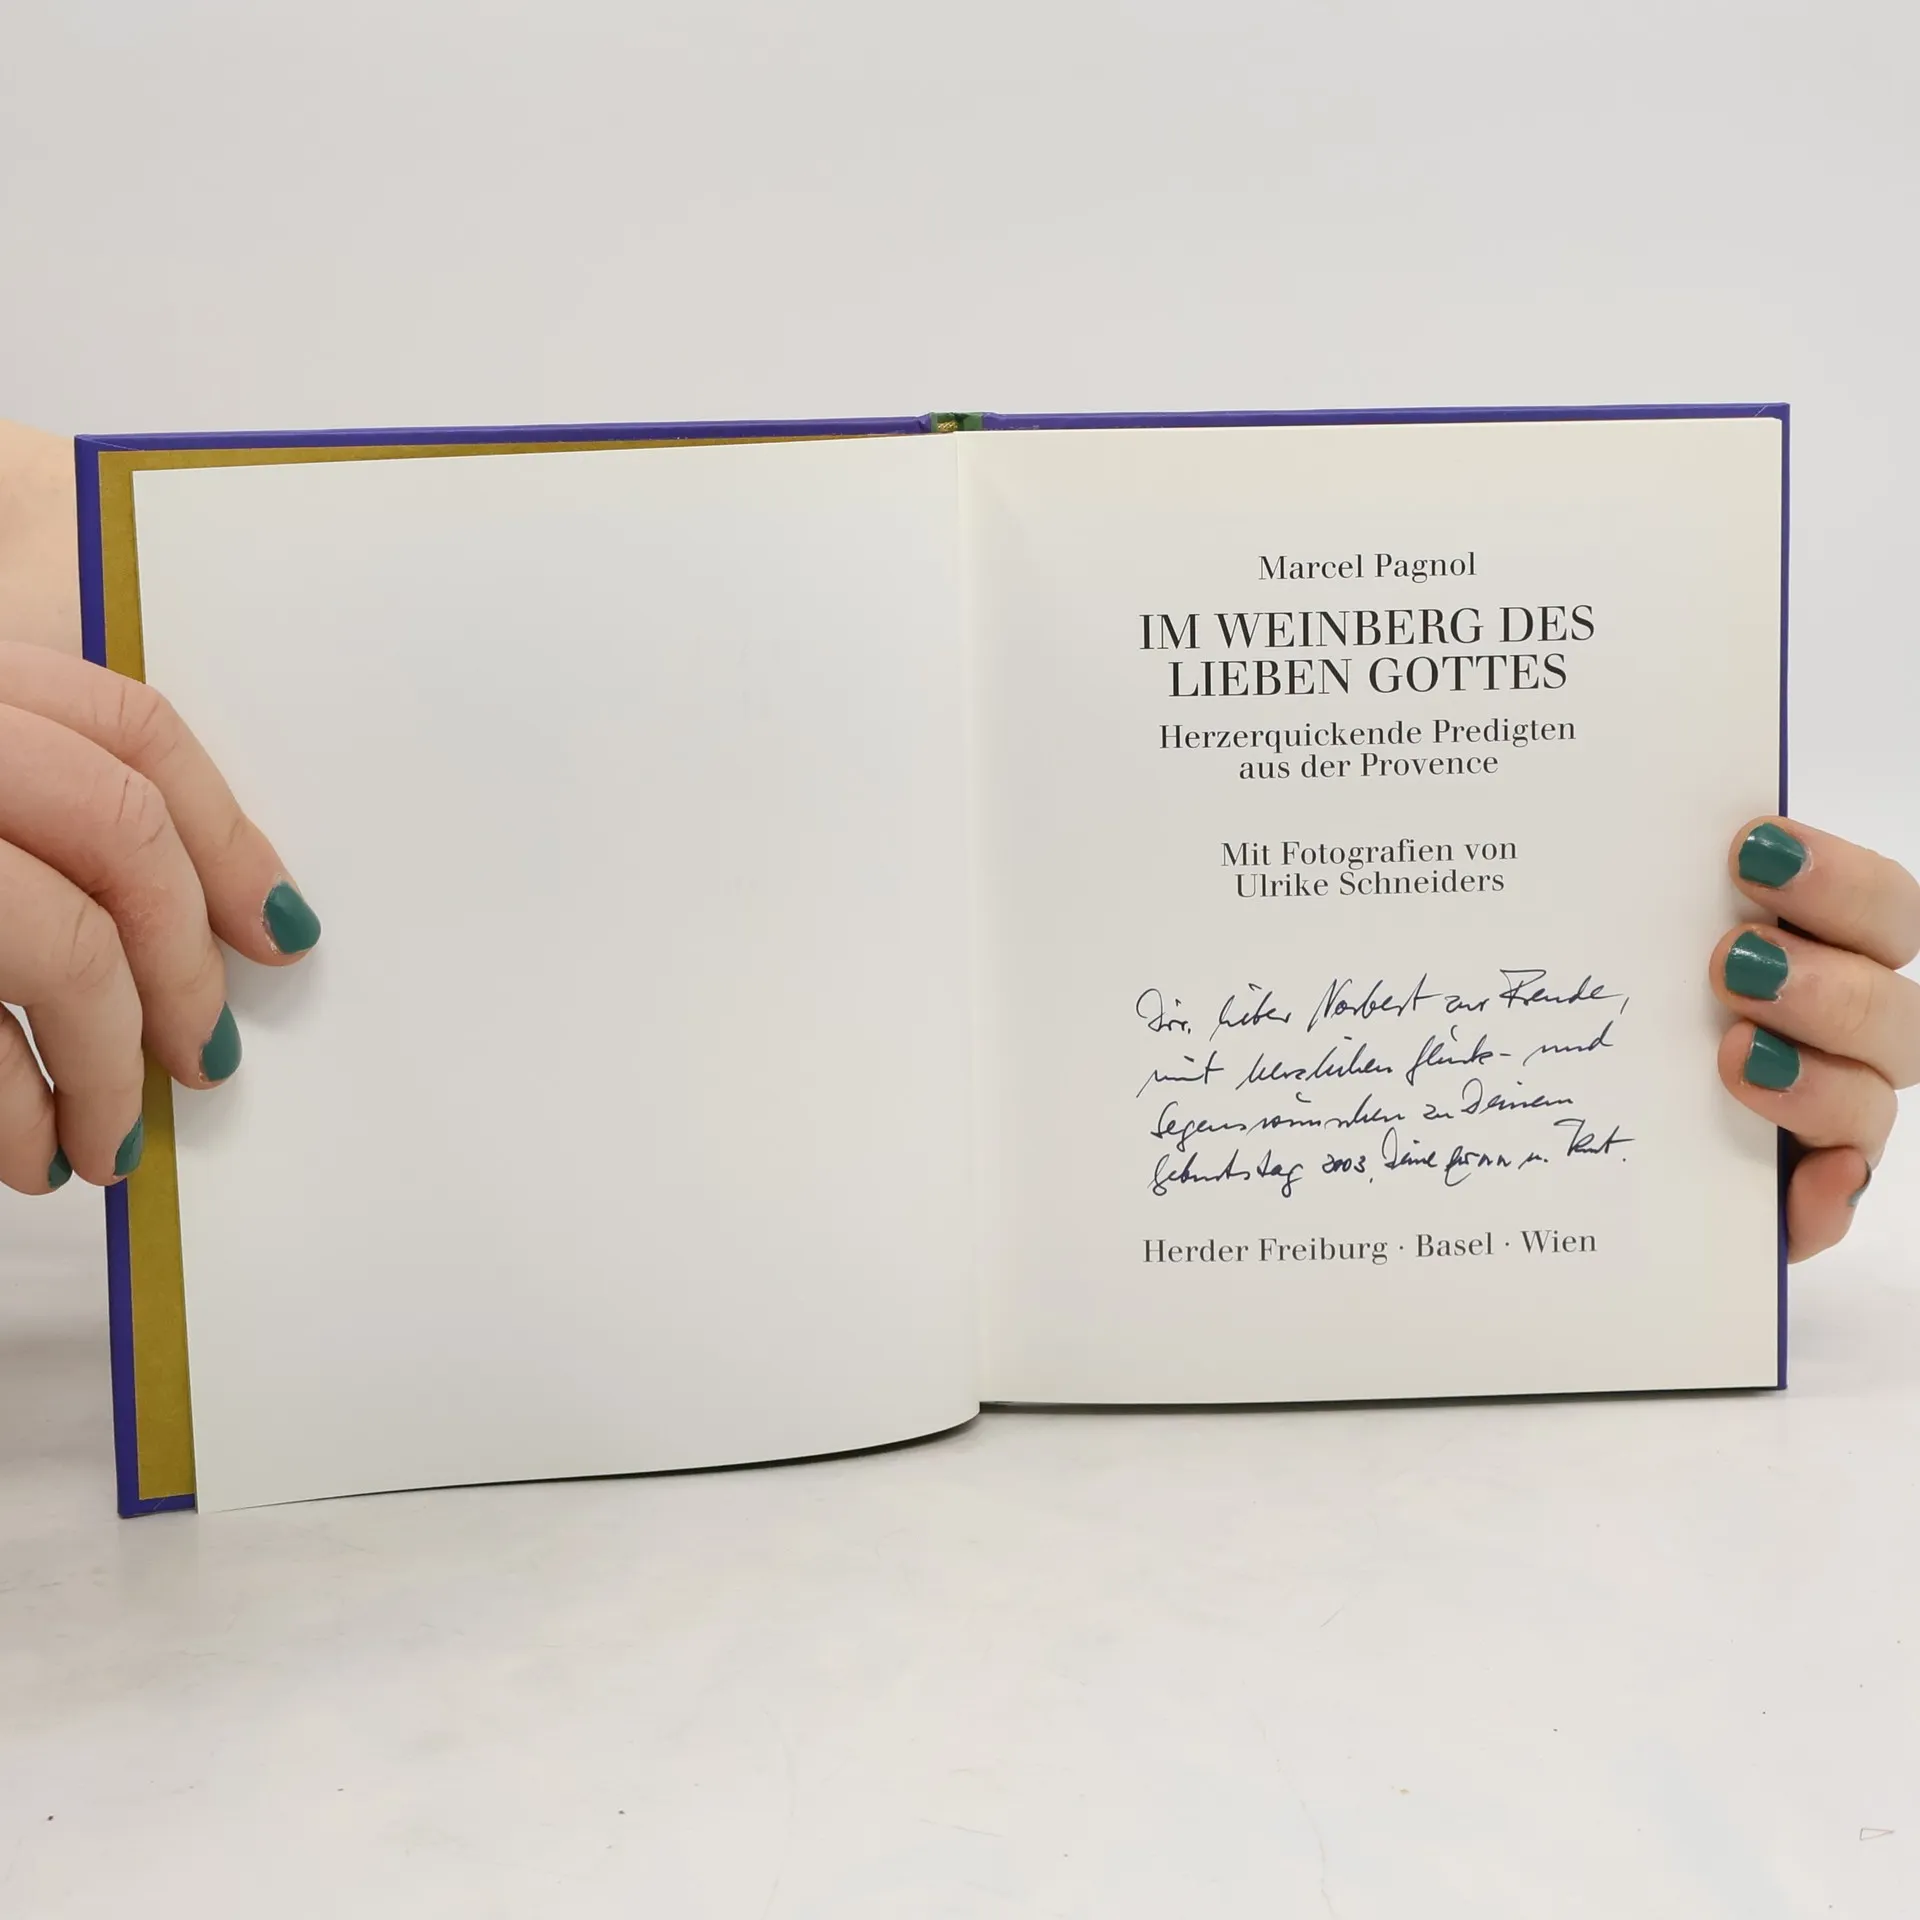 Marcel Pagnol
IM WEINBERG DES
LIEBEN GOTTES
Herzerquickende Predigten
aus der Provence
Mit Fotografien von
Ulrike Schneiders
Dir, lieber Norbert zur Freude,
mit herzlichen Glück- und
Segenswünschen zu Deinem
Geburtstag 2003, Deine u.
Herder Freiburg · Basel · Wien